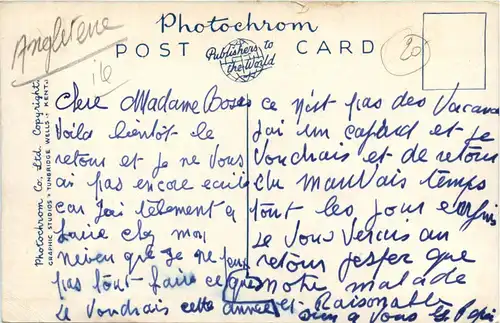 Angleterre
Photochrom
POST CARD
Publishers to
the World
20
Photochrom Co. Ltd. Copyright.
GRAPHIC STUDIOS • TUNBRIDGE WELLS • KENT
Chere Madame
Voila bientôt le
retour et je ne vous
ai pas encore
car J'ai tèlement a
faire chez mon
neveu que Je ne peux
pas tout faire ce que
Je Voudrais cette année
ce n'est pas des Vacances
J'ai un cafard et je
Voudrais et de retour
du mauvais temps
tout les jour enfin
Je Vous Verrais au
retour J'esper que
notre malade
et Raisonable
bien a Vous